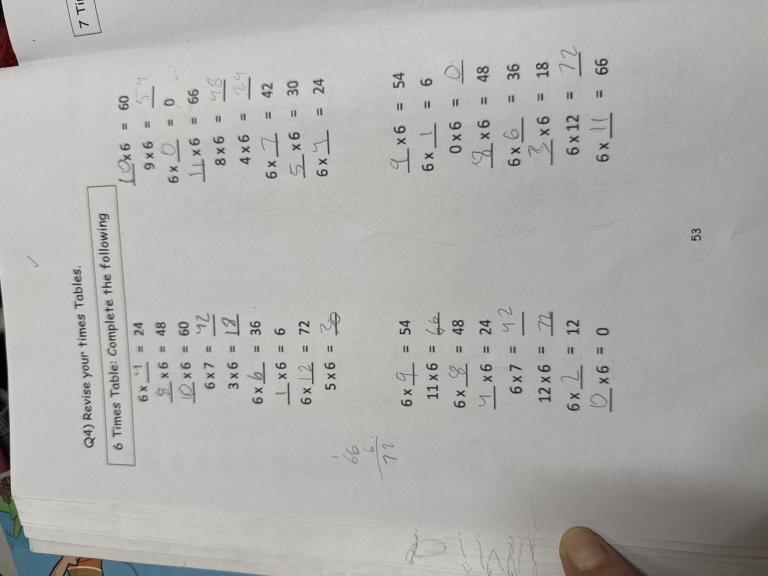 7 Ti
Q4) Revise your times Tables.
6 Times Table: Complete the following
6 x 4 = 24
8 x 6 = 48
10 x 6 = 60
6 x 7 = 42
3 x 6 = 18
6 x 6 = 36
1 x 6 = 6
6 x 12 = 72
5 x 6 = 30
10 x 6 = 60
9 x 6 = 54
6 x 0 = 0
11 x 6 = 66
8 x 6 = 48
4 x 6 = 24
6 x 7 = 42
5 x 6 = 30
6 x 4 = 24
66
6
72
6 x 9 = 54
11 x 6 = 66
6 x 8 = 48
4 x 6 = 24
6 x 7 = 42
12 x 6 = 72
6 x 2 = 12
0 x 6 = 0
9 x 6 = 54
6 x 1 = 6
0 x 6 = 0
8 x 6 = 48
6 x 6 = 36
3 x 6 = 18
6 x 12 = 72
6 x 11 = 66
53